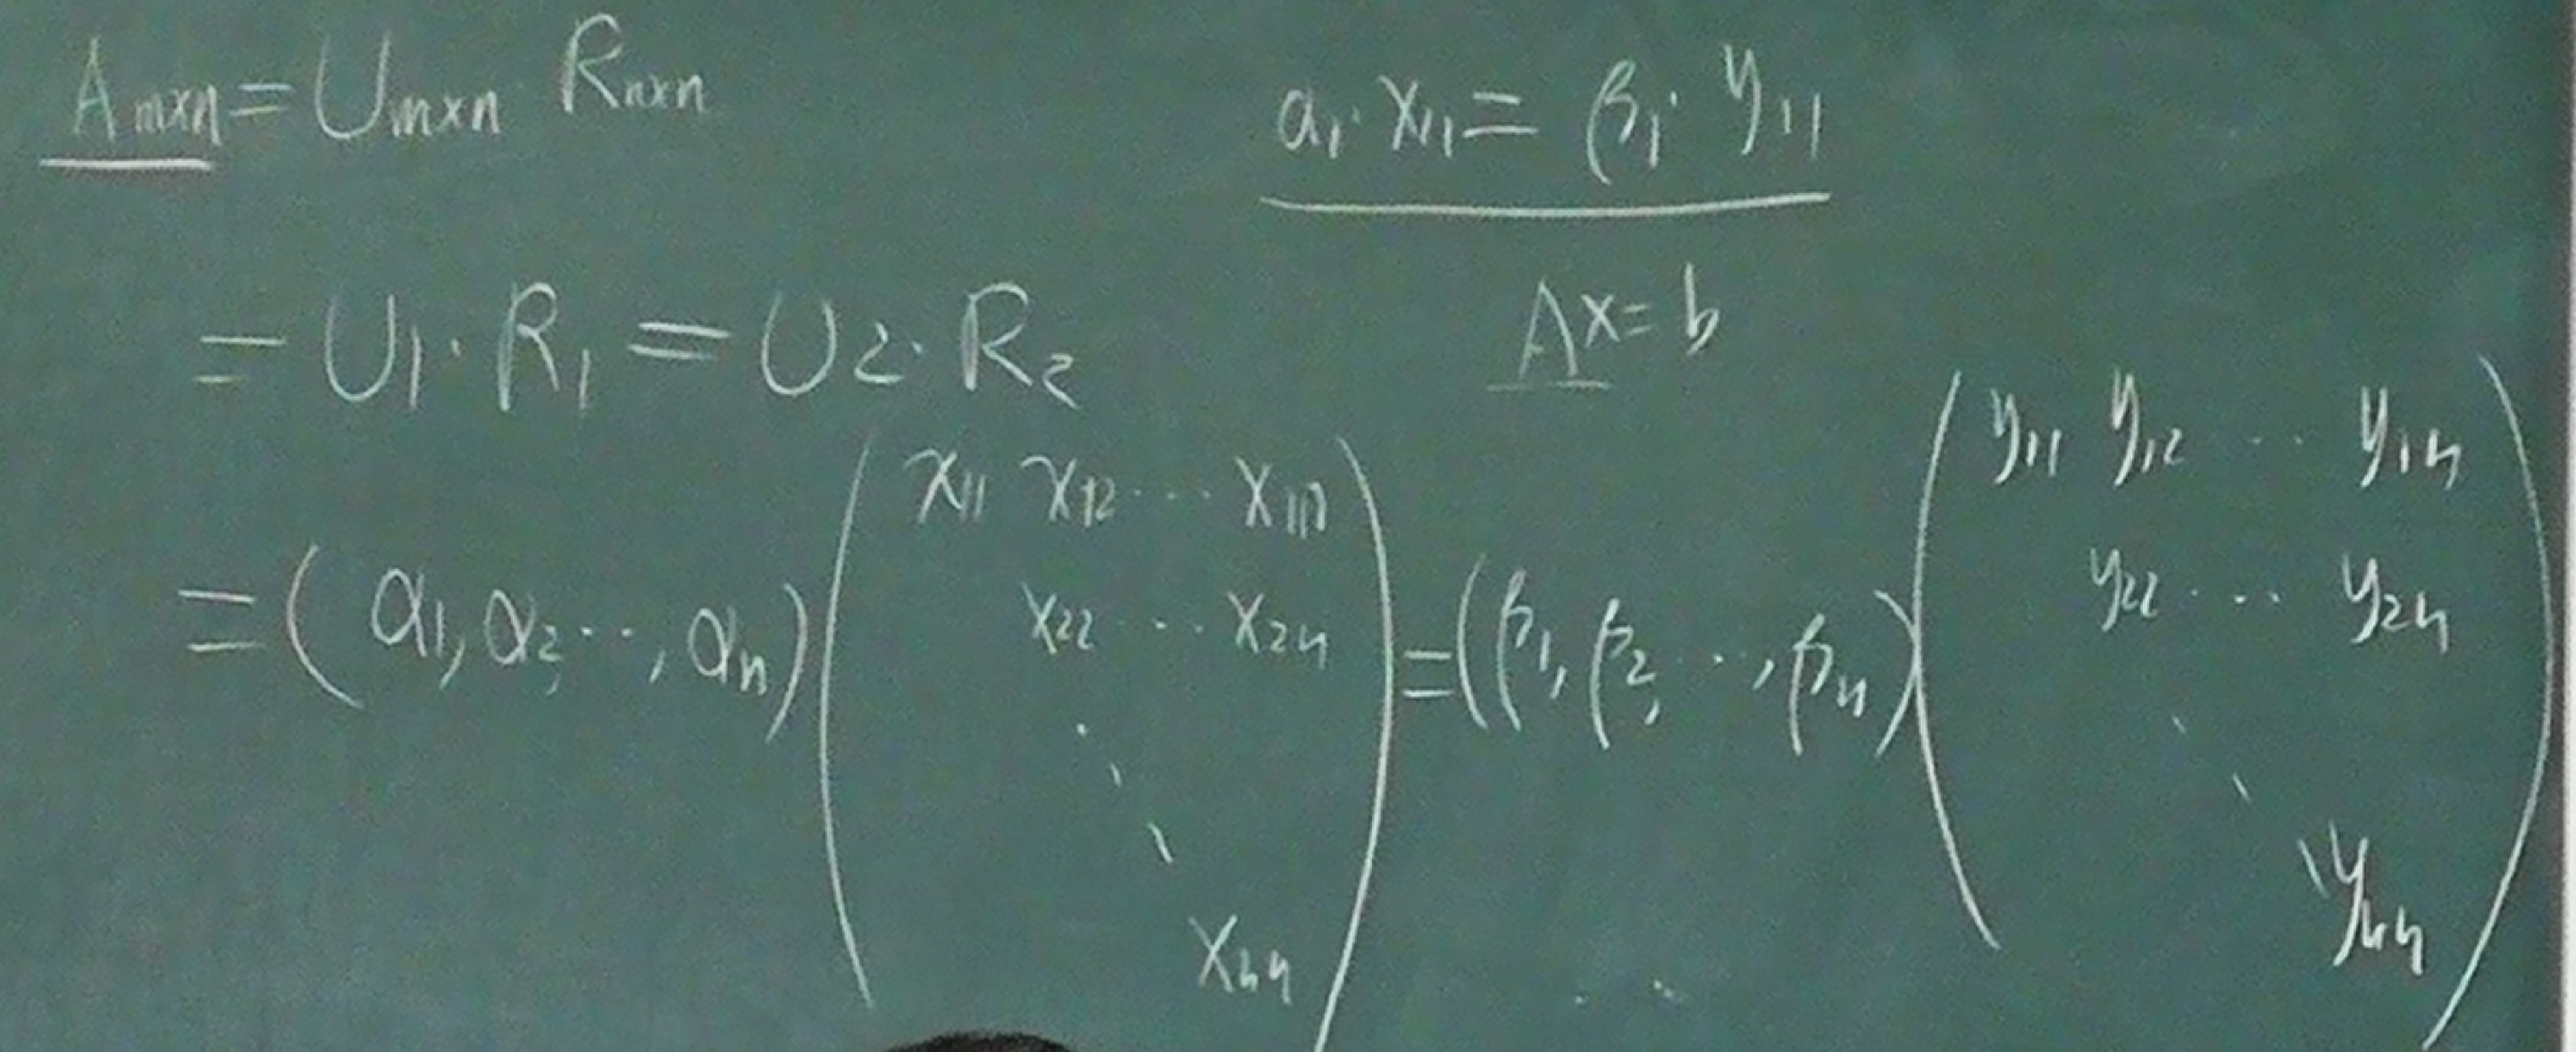 A_{m×n} = U_{m×n} · R_{n×n}
α₁·x₁₁ = β₁·y₁₁
Ax = b
= U₁·R₁ = U₂·R₂
= (α₁, α₂, ···, αₙ) \begin{pmatrix} x_{11} & x_{12} & \cdots & x_{1n} \\ & x_{22} & \cdots & x_{2n} \\ & & \ddots & \\ & & & x_{nn} \end{pmatrix} = (β₁, β₂, ···, βₙ) \begin{pmatrix} y_{11} & y_{12} & \cdots & y_{1n} \\ & y_{22} & \cdots & y_{2n} \\ & & \ddots & \\ & & & y_{nn} \end{pmatrix}